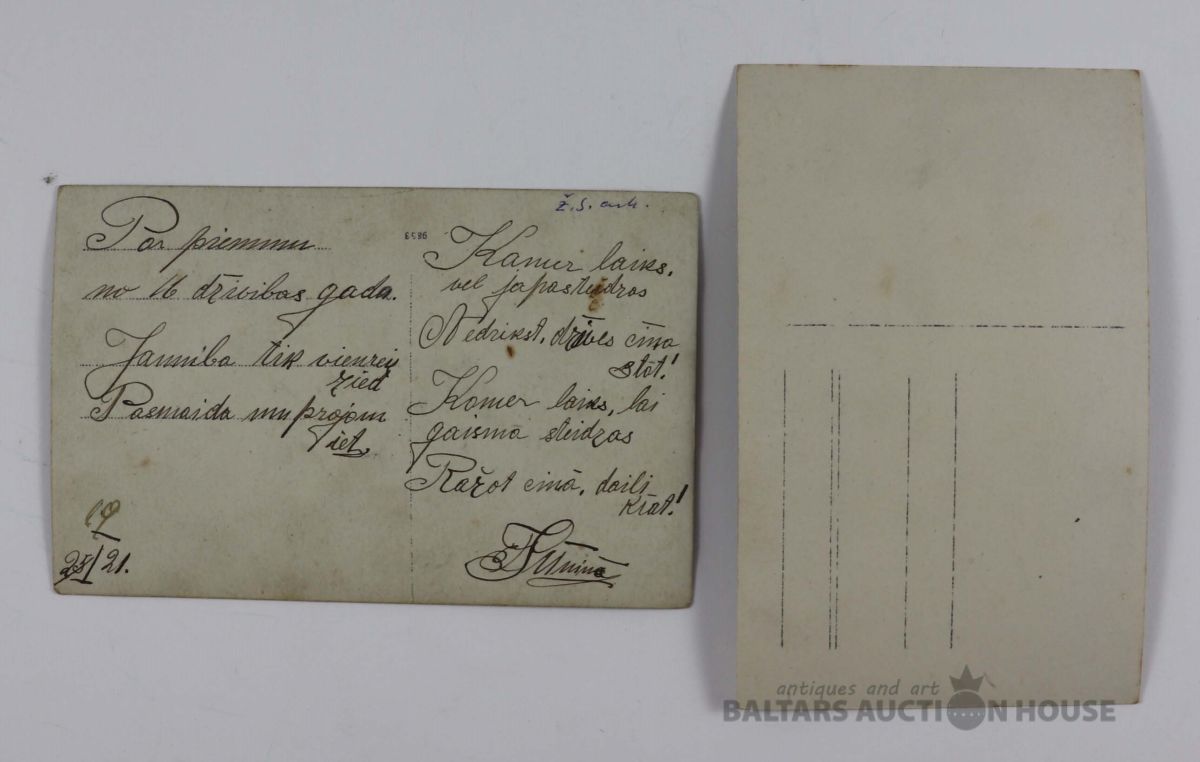 Par piemmu
no 16 dzīvibas gada.
Jauniba tik vienreiz
zied
Pasmaida un projam
iet.
19
25/21.
9853
Kamer laiks,
vel japasteidzas
Nedrikst, dzīves cīņa
stāt!
Kamer laiks, lai
gaisma steidzas
Ražot cīnā, daili
krāt!
antiques and art
BALTARS AUCTION HOUSE